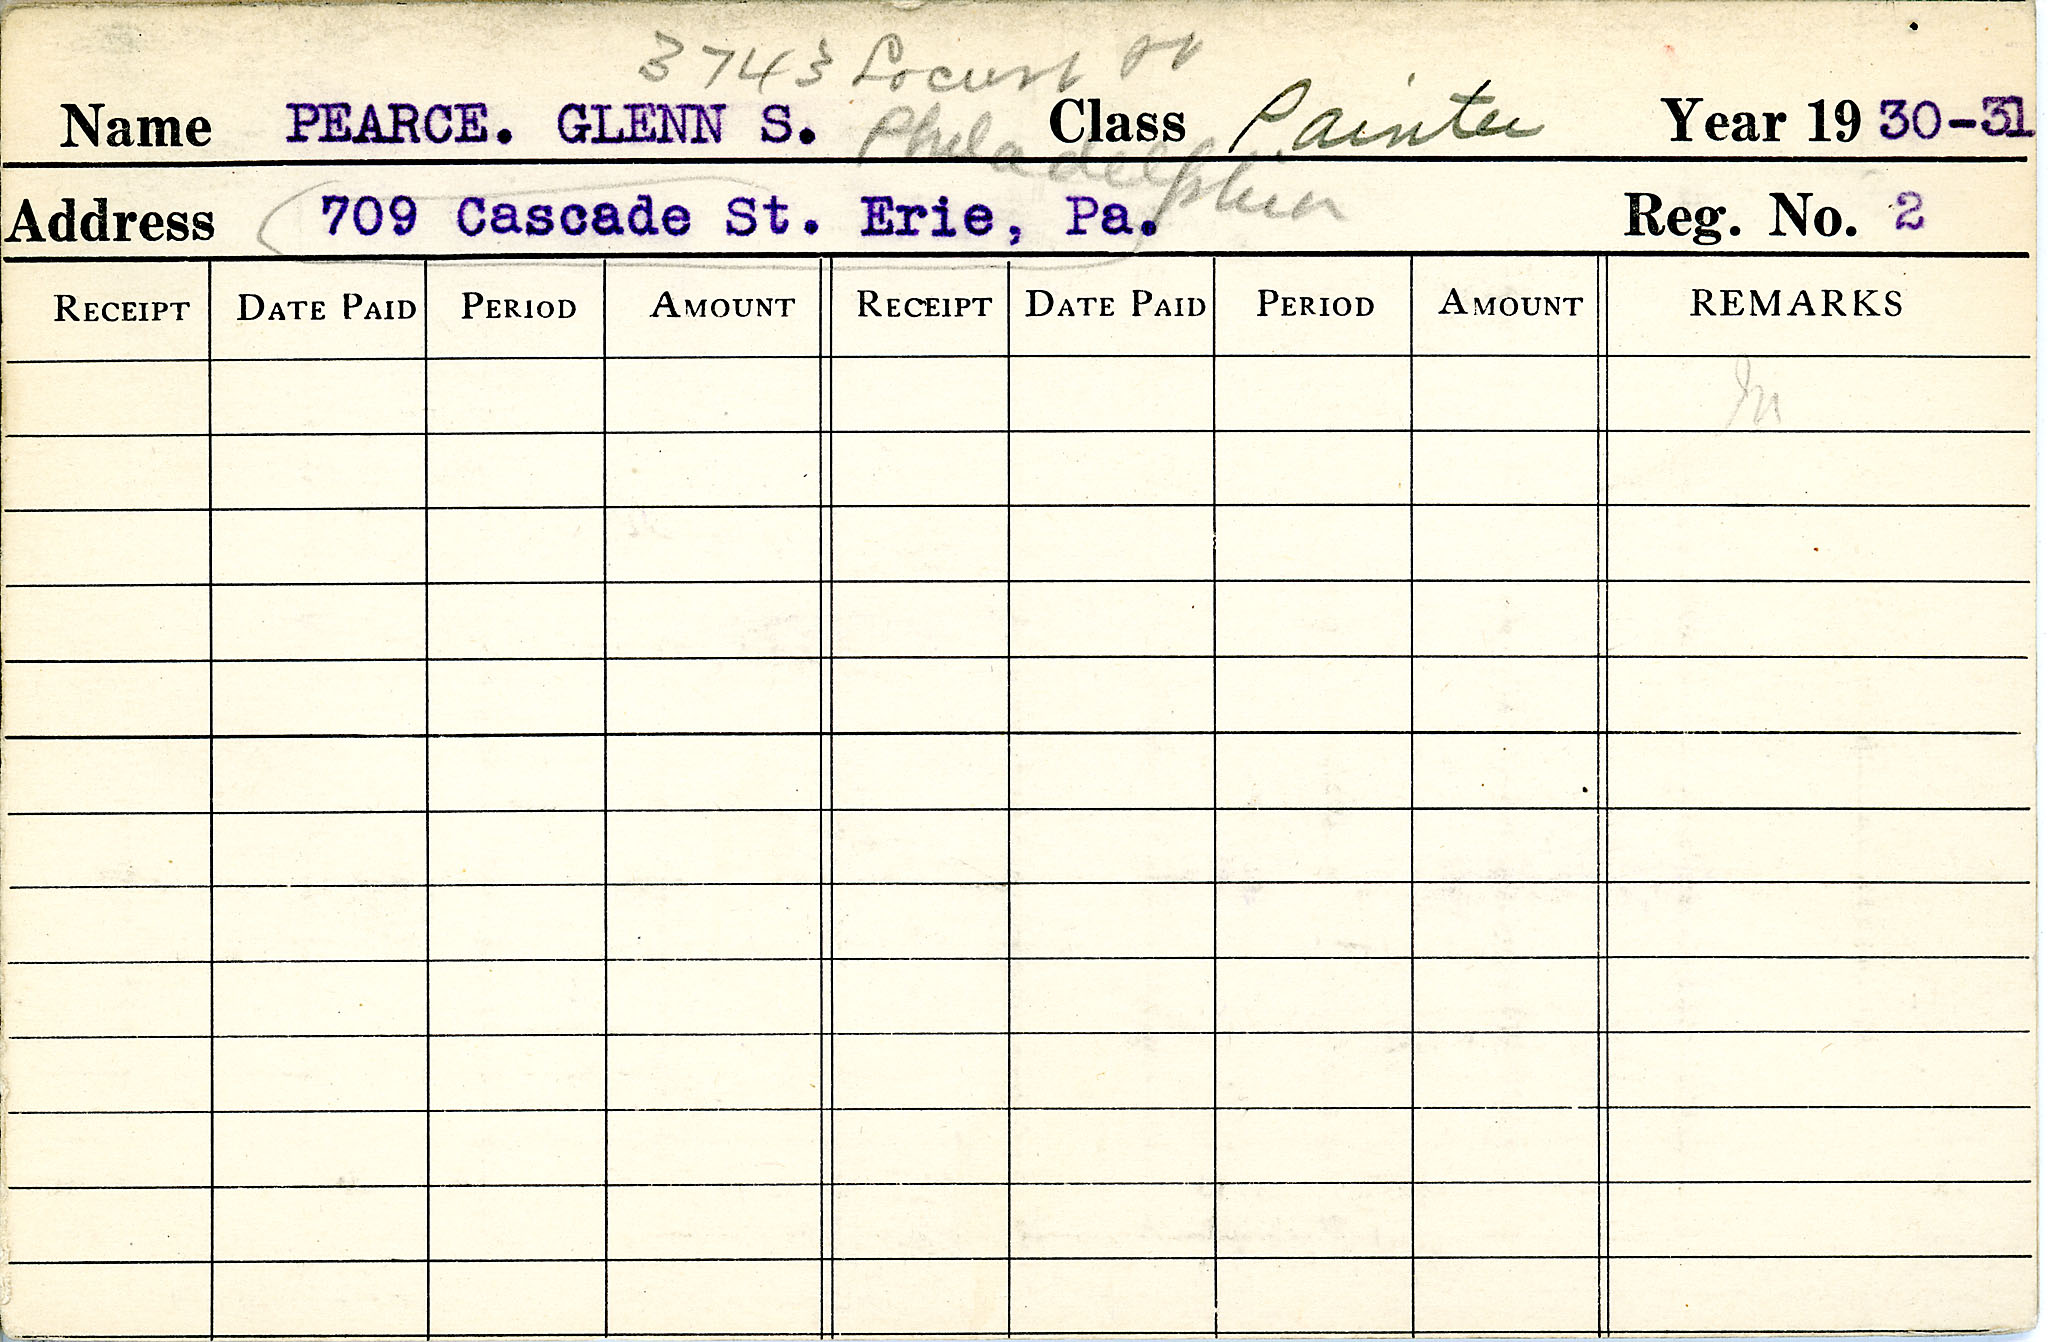 3743 Locust St
Name PEARCE. GLENN S. Philadelphia Class Painter Year 19 30-31
Address 709 Cascade St. Erie, Pa. Reg. No. 2
RECEIPT DATE PAID PERIOD AMOUNT RECEIPT DATE PAID PERIOD AMOUNT REMARKS